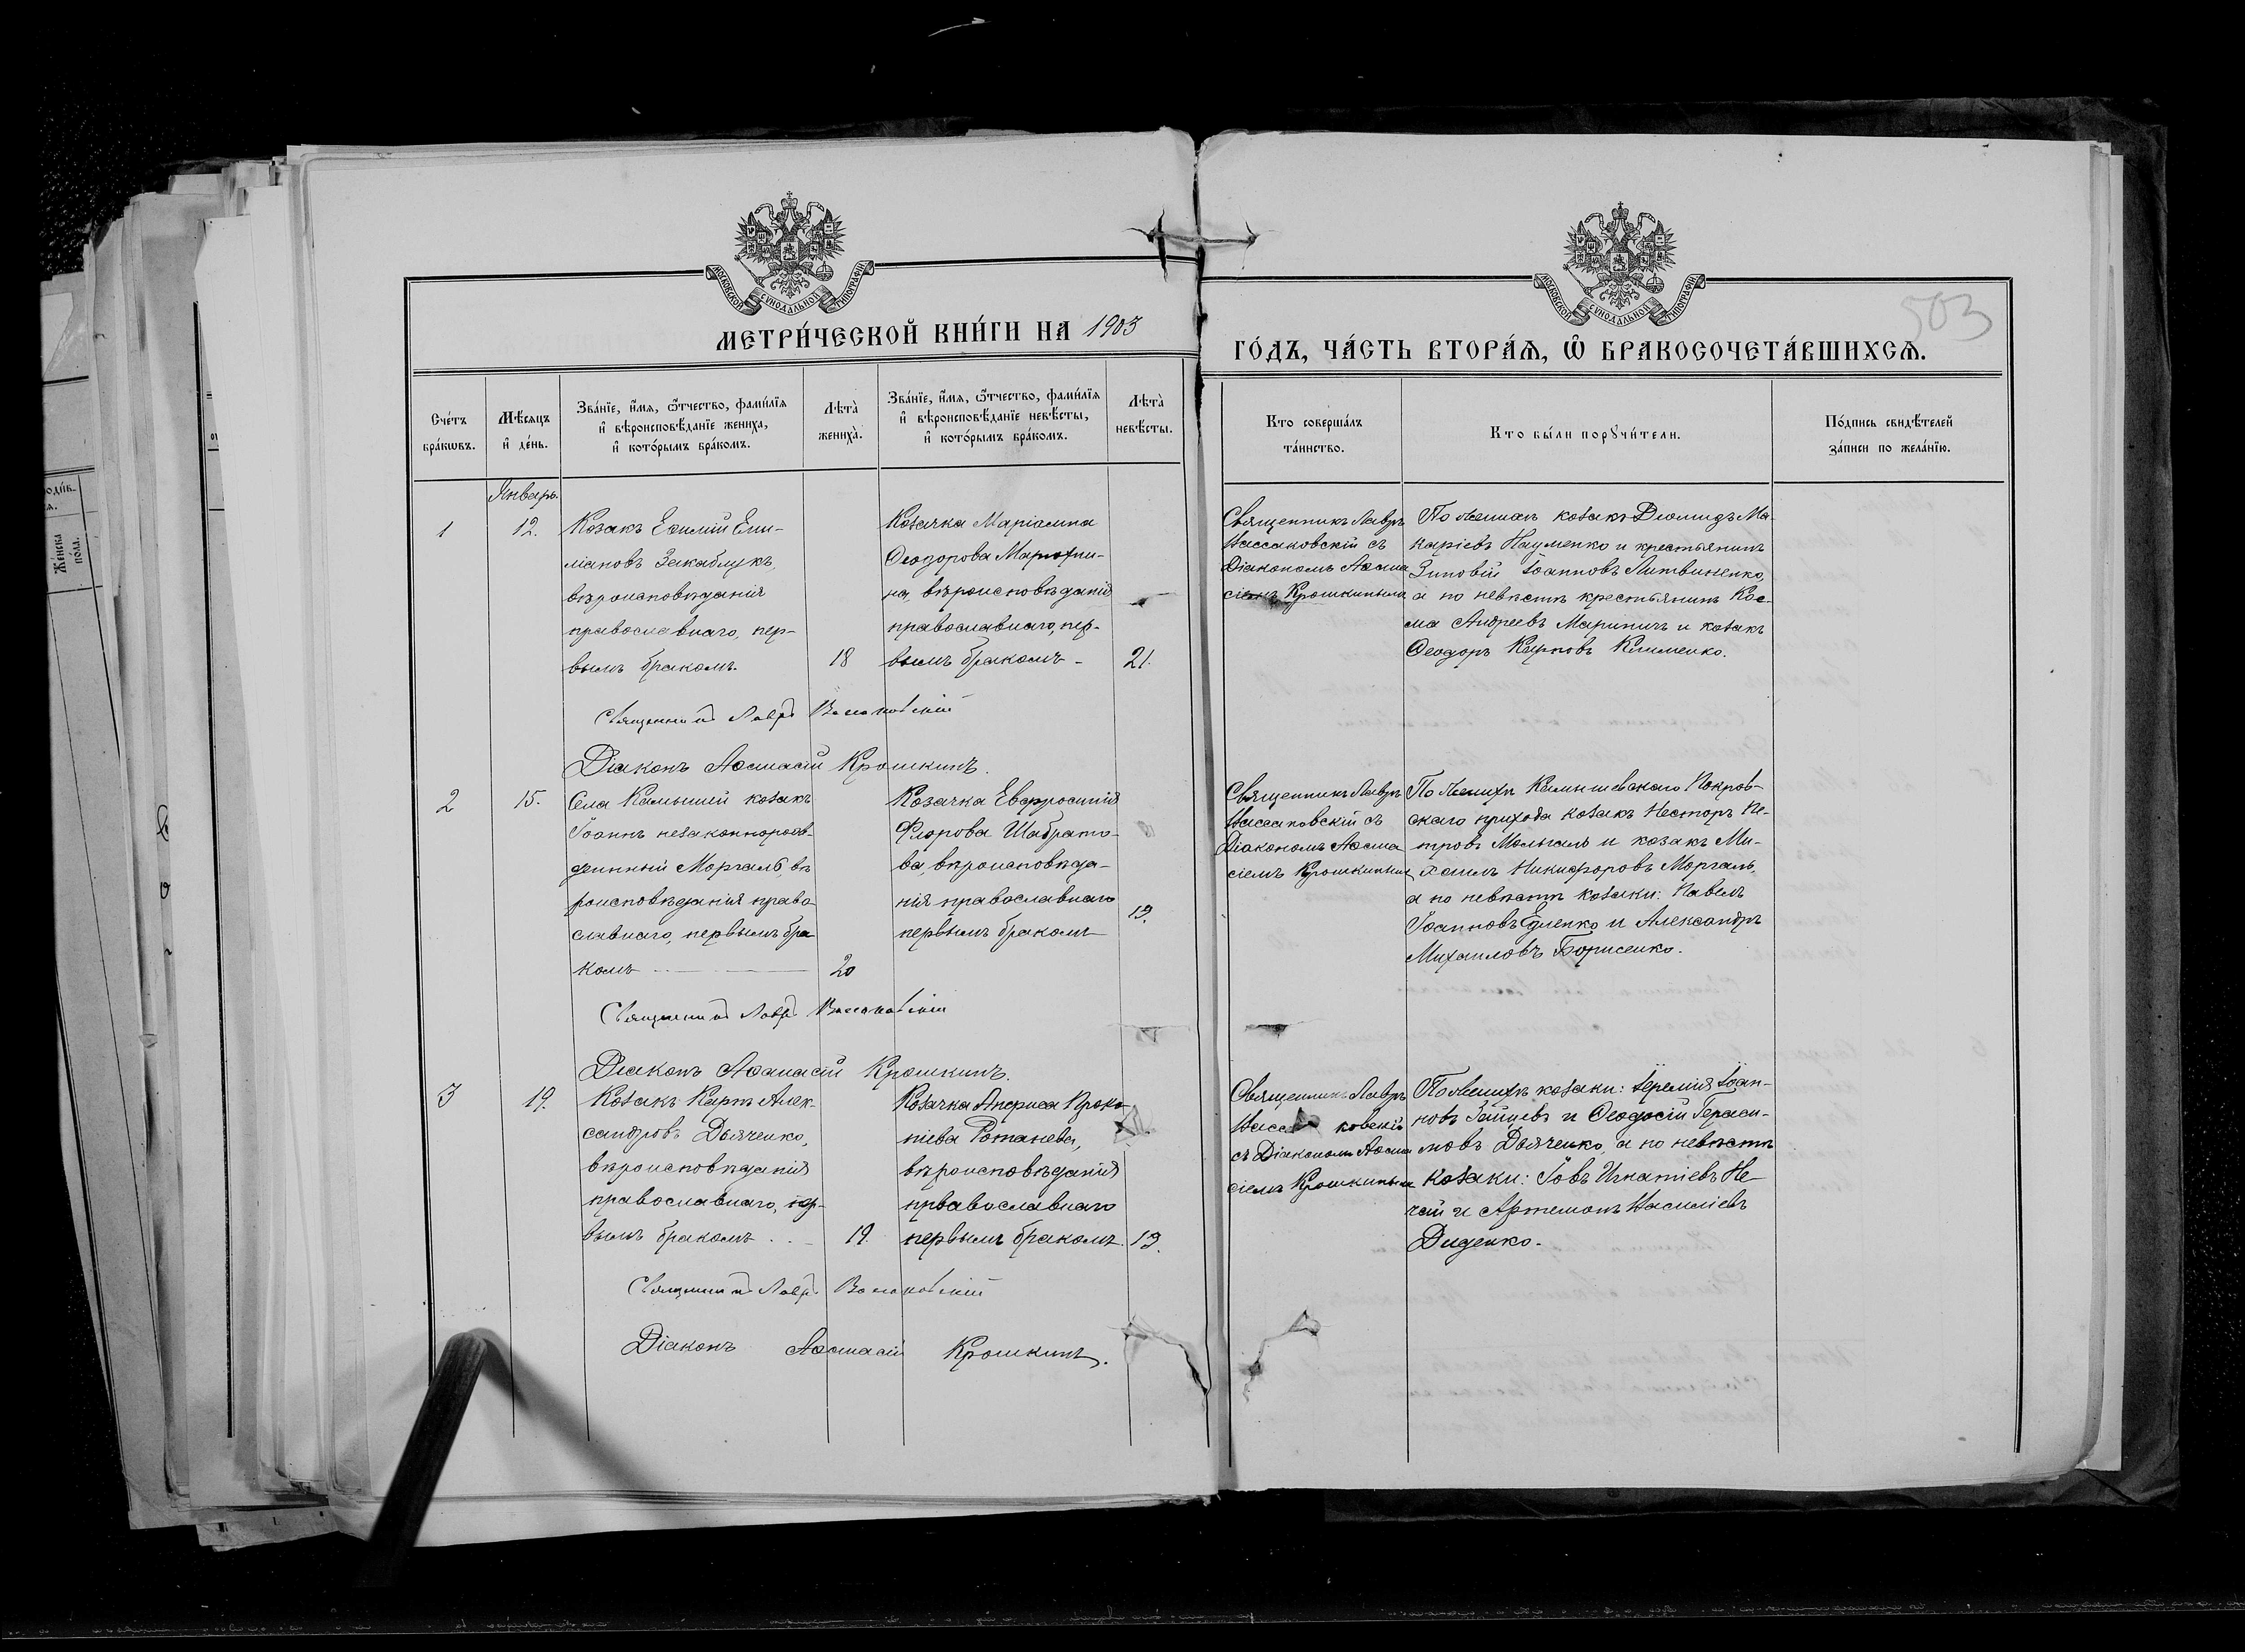 МОСКОВСКОЙ СѴНОДАЛЬНОЙ ТИПОГРАФІИ
МЕТРИ́ЧЕСКОЙ КНИ́ГИ НА 1903
МОСКОВСКОЙ СѴНОДАЛЬНОЙ ТИПОГРАФІИ
503
ГО́ДЪ, ЧА́СТЬ ВТОРА́Я, Ѽ БРАКОСОЧЕТА́ВШИХСЯ.
Сче́тъ
бра́кѡвъ.
Мѣ́сяцъ
и҆ де́нь.
Зва́нїе, и҆́мя, ѻ҆́тчество, фами́лїя
и҆ вѣроисповѣ́данїе жениха̀,
и҆ кото́рымъ бра́комъ.
Лѣта̀
жениха̀.
Зва́нїе, и҆́мя, ѻ҆́тчество, фами́лїя
и҆ вѣроисповѣ́данїе невѣ́сты,
и҆ кото́рымъ бра́комъ.
Лѣта̀
невѣ́сты.
Кто соверша́лъ
та́инство.
Кто бы́ли порꙋчи́тели.
По́дпись свидѣ́телей
за́писи по жела́нїю.
Январь.
1
12.
Козакъ Емилій Еми-
ліановъ Закаблукъ,
вѣроисповѣданія
православнаго, пер-
вымъ бракомъ.
18
Козачка Маріамна
Ѳеодорова
на, вѣроисповѣданія
православнаго, пер-
вымъ бракомъ -
21.
Священникъ Лавръ
Вассаковскій съ
Діакономъ Аѳана
сіемъ Крошкинымъ
По женихѣ козакъ Діомидъ Ма-
каріевъ Науменко и крестьянинъ
Зиновій Іоанновъ Литвиненко,
а по невѣстѣ крестьянинъ Кос-
ма Андреевъ Мариничъ и козакъ
Ѳеодоръ Карповъ Клименко.
Священникъ Лавръ Вассаковскій
Діаконъ Аѳанасій Крошкинъ.
2
15.
Села Камышей козакъ
Іоаннъ незаконнорож-
денный Моргаль, вѣ
роисповѣданія право
славнаго, первымъ бра
комъ
20
Козачка Евфросинія
Флорова Шабрато-
ва, вѣроисповѣда-
нія православнаго
первымъ бракомъ
19.
Священникъ Лавръ
Вассаковскій съ
Діакономъ Аѳана
сіемъ Крошкинымъ
По женихѣ Камышевскаго Покров-
скаго прихода козакъ Несторъ Пе-
тровъ и козакъ Ми-
хаилъ Никифоровъ Моргаль,
а по невѣстѣ козаки: Павелъ
Іоанновъ и Александръ
Михаиловъ Борисенко.
Священникъ Лавръ Вассаковскій
Діаконъ Аѳанасій Крошкинъ.
3
19.
Козакъ Карпъ Алек-
сандровъ Дьяченко,
вѣроисповѣданія
православнаго, пер-
вымъ бракомъ
19.
Козачка Анфиса Проко-
піева Романева,
вѣроисповѣданія
православнаго
первымъ бракомъ.
19.
Священникъ Лавръ
Вассаковскій
съ Діакономъ Аѳана
сіемъ Крошкинымъ
По женихѣ козаки: Іеремія Іоан-
новъ Зайцевъ и Ѳеодосій Гераси-
мовъ Дьяченко, а по невѣстѣ
козаки: Іовъ Игнатіевъ Не-
чай и Артемонъ Василіевъ
Диденко.
Священникъ Лавръ Вассаковскій
Діаконъ Аѳанасій Крошкинъ.
Же́нска
по́ла.